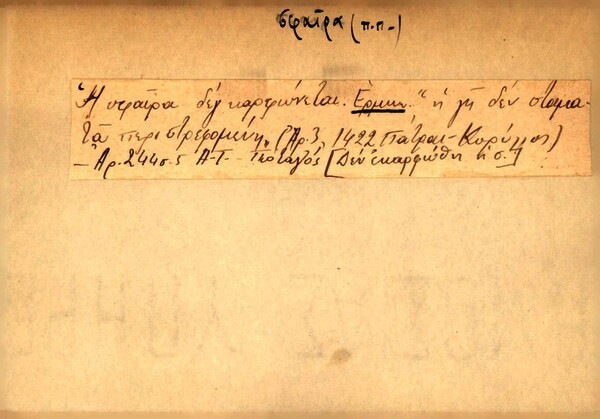 σφαῖρα (π.π.)
Ἡ σφαῖρα δέγ καρφώνεται. Ἑρμην. "ἡ γῆ δέν σταμα-
τᾶ περιστρεφομένη„ (Ἀρ. 3, 1422 Πάτραι-Κορύλλος)
– Ἀρ. 244 σ. 5 Α-Τ- Γεωταγός [Δέν ἐκαρφώθη ἡ σ.]